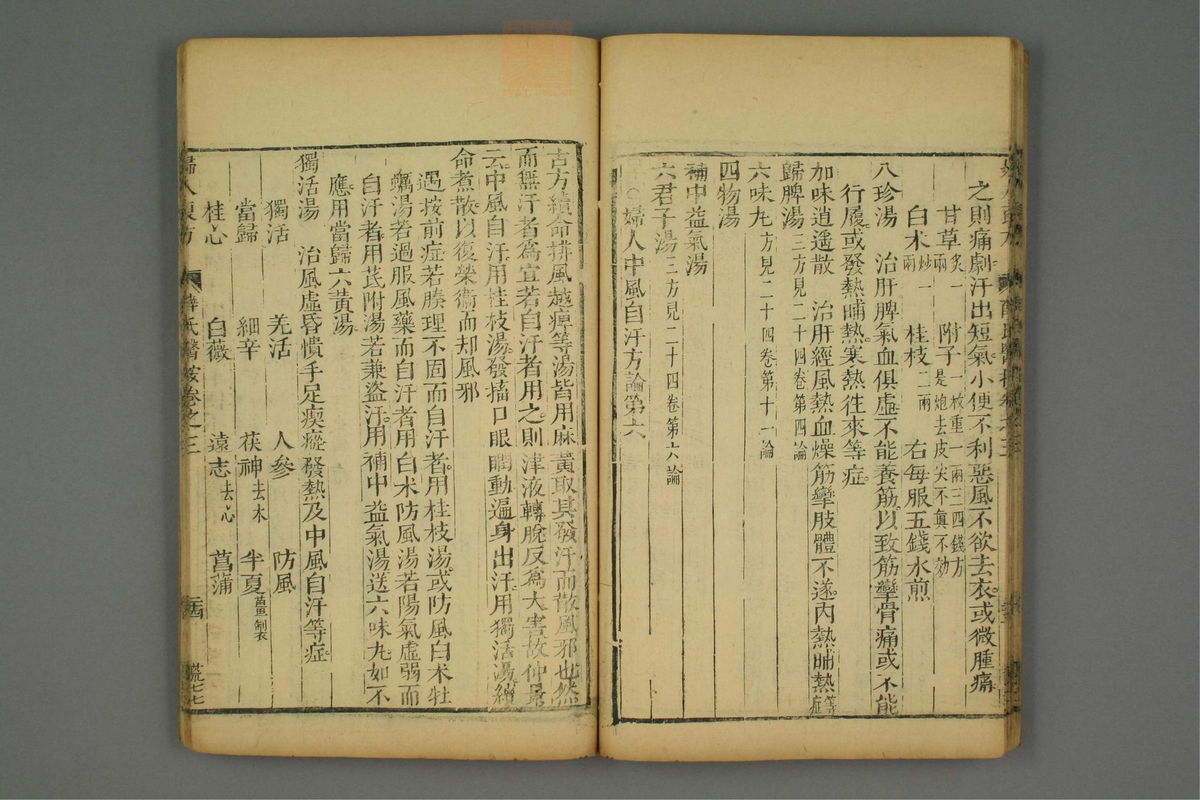 之則痛劇汗出短氣小便不利惡風不欲去衣或微腫痛
甘草炙一兩 附子一枚重一兩三四錢方是炮去皮尖不眞不効
白朮炒一兩 桂枝二兩 右每服五錢水煎
八珍湯 治肝脾氣血俱虛不能養筋以致筋攣骨痛或不能
行履或發熱晡熱寒熱徃來等症
加味逍遥散 治肝經風熱血燥筋攣肢體不遂內熱晡熱等症
歸脾湯三方見二十四卷第四論
六味丸方見二十四卷第十一論
四物湯
補中益氣湯
六君子湯三方見二十四卷第六論
○婦人中風自汗方論第六
古方續命排風越痺等湯皆用麻黃取其發汗而散風邪也然
而無汗者爲宜若自汗者用之則津液轉脫反爲大害故仲景
云中風自汗用桂枝湯發搐口眼瞤動遍身出汗用獨活湯續
命煮散以復榮衞而却風邪
愚按前症若腠理不固而自汗者用桂枝湯或防風白朮牡
蠣湯若過服風藥而自汗者用白朮防風湯若陽氣虛弱而
自汗者用芪附湯若兼盜汗用補中益氣湯送六味丸如不
應用當歸六黃湯
獨活湯 治風虛昏憒手足瘈瘲發熱及中風自汗等症
獨活 羌活 人參 防風
當歸 細辛 茯神去木 半夏薑製
桂心 白薇 遠志去心 菖蒲
婦人良方 薛氏醫按卷之三